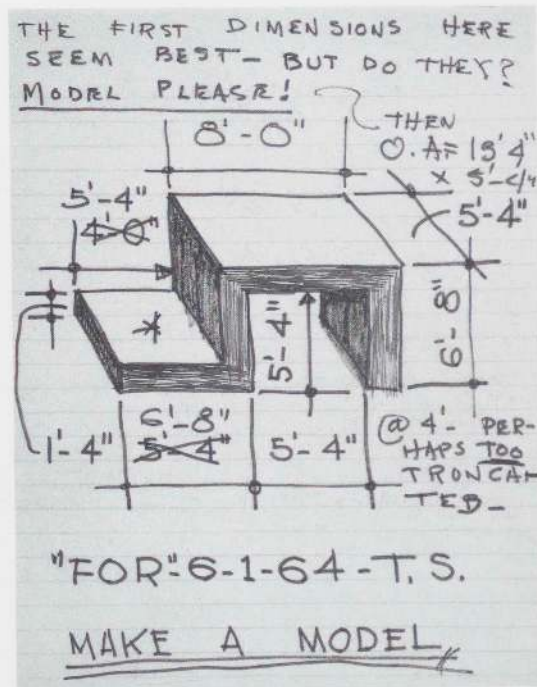 THE FIRST DIMENSIONS HERE
SEEM BEST — BUT DO THEY?
MODEL PLEASE!
THEN
8'-0"
O.A= 13'4"
× 5'-4"
5'-4"
4'-0"
5'-4"
5'-4"
6'-8"
1'-4"
6'-8"
5'-4"
5'-4"
@ 4'- PER-
HAPS TOO
TRONCA
TED—
"FOR"-6-1-64-T.S.
MAKE A MODEL